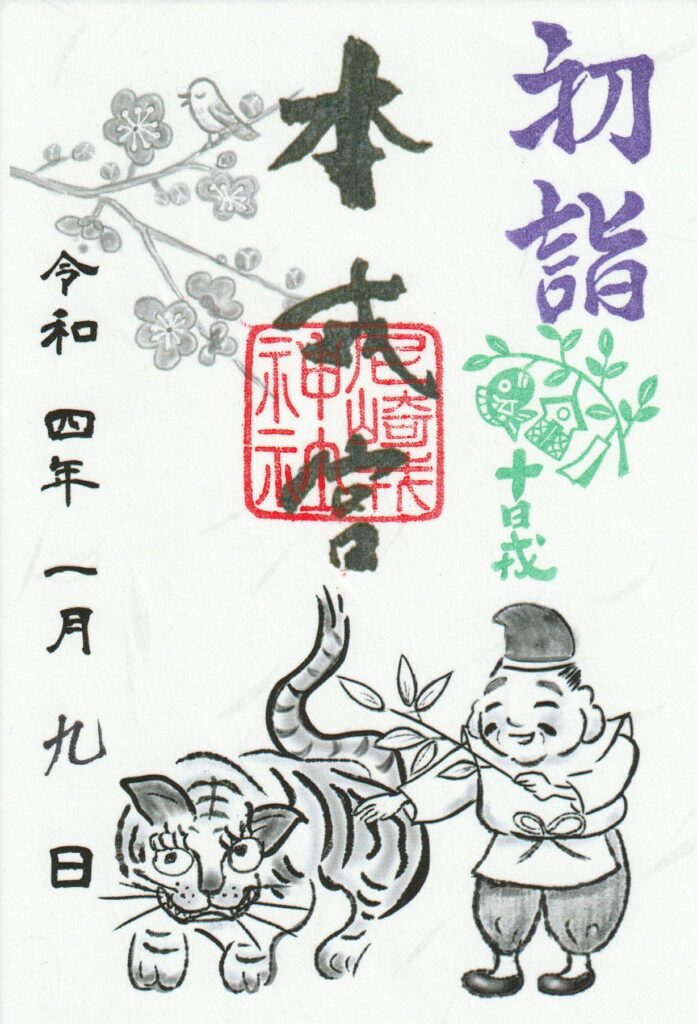 初詣
十日戎
本戎宮
尼崎戎
神社
令和 四年 一月 九 日